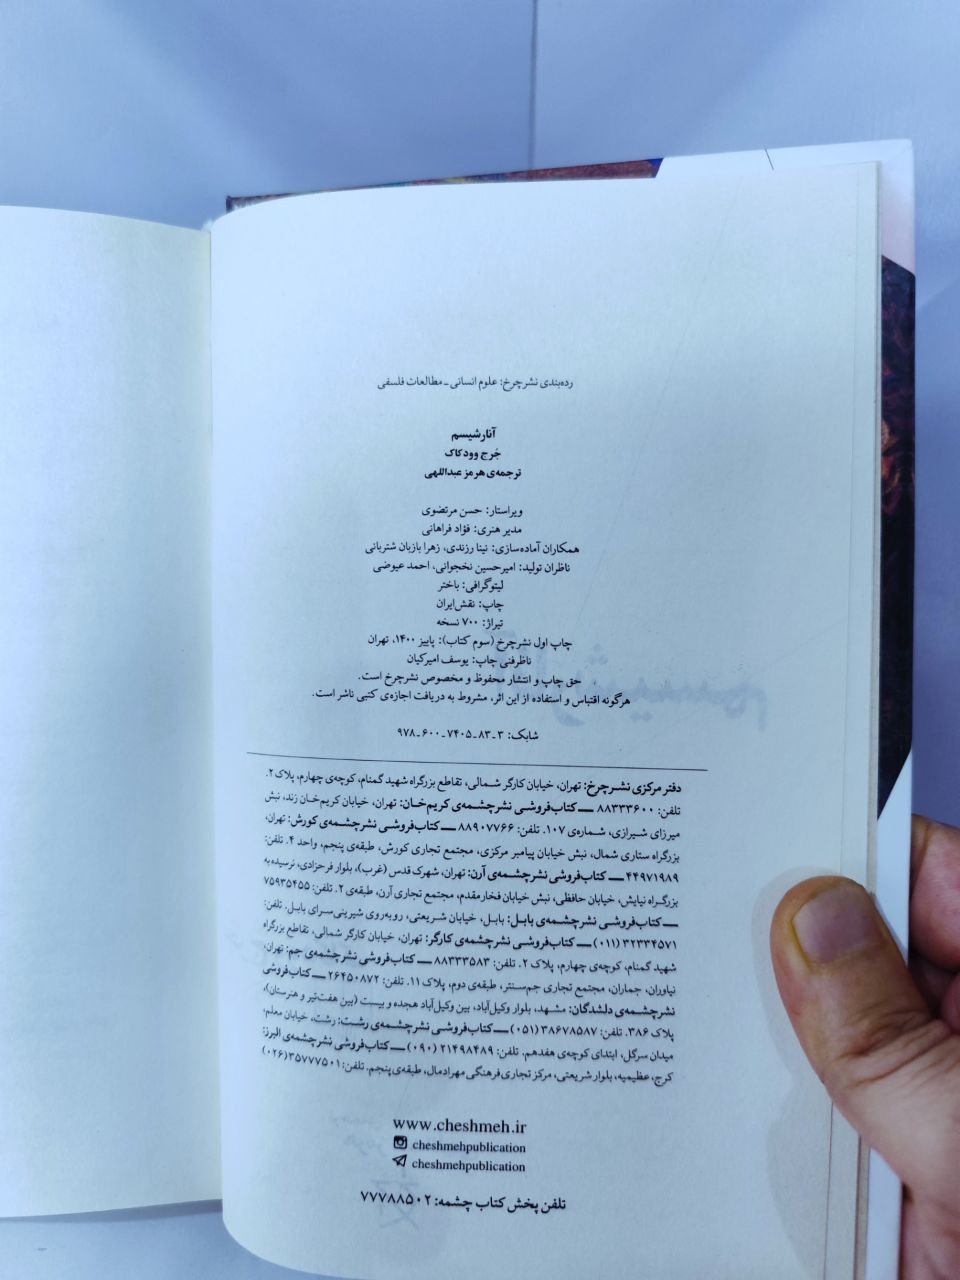 رده‌بندی نشرچرخ: علوم انسانی ـ مطالعات فلسفی
آنارشیسم
جُرج وودکاک
ترجمه‌ی هرمز عبداللهی
ویراستار: حسن مرتضوی
مدیر هنری: فؤاد فراهانی
همکاران آماده‌سازی: نینا رزندی، زهرا بازیان شتربانی
ناظران تولید: امیرحسین نخجوانی، احمد عیوضی
لیتوگرافی: باختر
چاپ: نقش‌ایران
تیراژ: ۷۰۰ نسخه
چاپ اول نشرچرخ (سوم کتاب): پاییز ۱۴۰۰، تهران
ناظرفنی چاپ: یوسف امیرکیان
حق چاپ و انتشار محفوظ و مخصوص نشرچرخ است.
هرگونه اقتباس و استفاده از این اثر، مشروط به دریافت اجازه‌ی کتبی ناشر است.
شابک: ۳ـ۸۳ـ۷۴۰۵ـ۶۰۰ـ۹۷۸
دفتر مرکزی نشرچرخ: تهران، خیابان کارگر شمالی، تقاطع بزرگراه شهید گمنام، کوچه‌ی چهارم، پلاک ۲.
تلفن: ۸۸۳۳۳۶۰۰ ـــ کتاب‌فروشی نشرچشمه‌ی کریم‌خان: تهران، خیابان کریم‌خان زند، نبش
میرزای شیرازی، شماره‌ی ۱۰۷. تلفن: ۸۸۹۰۷۷۶۶ ـــ کتاب‌فروشی نشرچشمه‌ی کورش: تهران،
بزرگراه ستاری شمال، نبش خیابان پیامبر مرکزی، مجتمع تجاری کورش، طبقه‌ی پنجم، واحد ۴. تلفن:
۴۴۹۷۱۹۸۹ ـــ کتاب‌فروشی نشرچشمه‌ی آرن: تهران، شهرک قدس (غرب)، بلوار فرحزادی، نرسیده به
بزرگراه نیایش، خیابان حافظی، نبش خیابان فخارمقدم، مجتمع تجاری آرن، طبقه‌ی ۲. تلفن: ۷۵۹۳۵۴۵۵
ـــ کتاب‌فروشی نشرچشمه‌ی بابل: بابل، خیابان شریعتی، روبه‌روی شیرینی‌سرای بابل. تلفن:
۳۲۳۳۴۵۷۱ (۰۱۱) ـــ کتاب‌فروشی نشرچشمه‌ی کارگر: تهران، خیابان کارگر شمالی، تقاطع بزرگراه
شهید گمنام، کوچه‌ی چهارم، پلاک ۲. تلفن: ۸۸۳۳۳۵۸۳ ـــ کتاب‌فروشی نشرچشمه‌ی جم: تهران،
نیاوران، جماران، مجتمع تجاری جم‌سنتر، طبقه‌ی دوم، پلاک ۱۱. تلفن: ۲۶۴۵۰۸۷۲ ـــ کتاب‌فروشی
نشرچشمه‌ی دلشدگان: مشهد، بلوار وکیل‌آباد، بین وکیل‌آباد هجده و بیست (بین هفت‌تیر و هنرستان)،
پلاک ۳۸۶. تلفن: ۳۸۶۷۸۵۸۷ (۰۵۱) ـــ کتاب‌فروشی نشرچشمه‌ی رشت: رشت، خیابان معلم،
میدان سرگل، ابتدای کوچه‌ی هفدهم. تلفن: ۲۱۴۹۸۴۸۹ (۰۹۰) ـــ کتاب‌فروشی نشرچشمه‌ی البرز:
کرج، عظیمیه، بلوار شریعتی، مرکز تجاری فرهنگی مهرادمال، طبقه‌ی پنجم. تلفن: ۳۵۷۷۷۵۰۱ (۰۲۶)
www.cheshmeh.ir
cheshmehpublication
cheshmehpublication
تلفن پخش کتاب چشمه: ۷۷۷۸۸۵۰۲